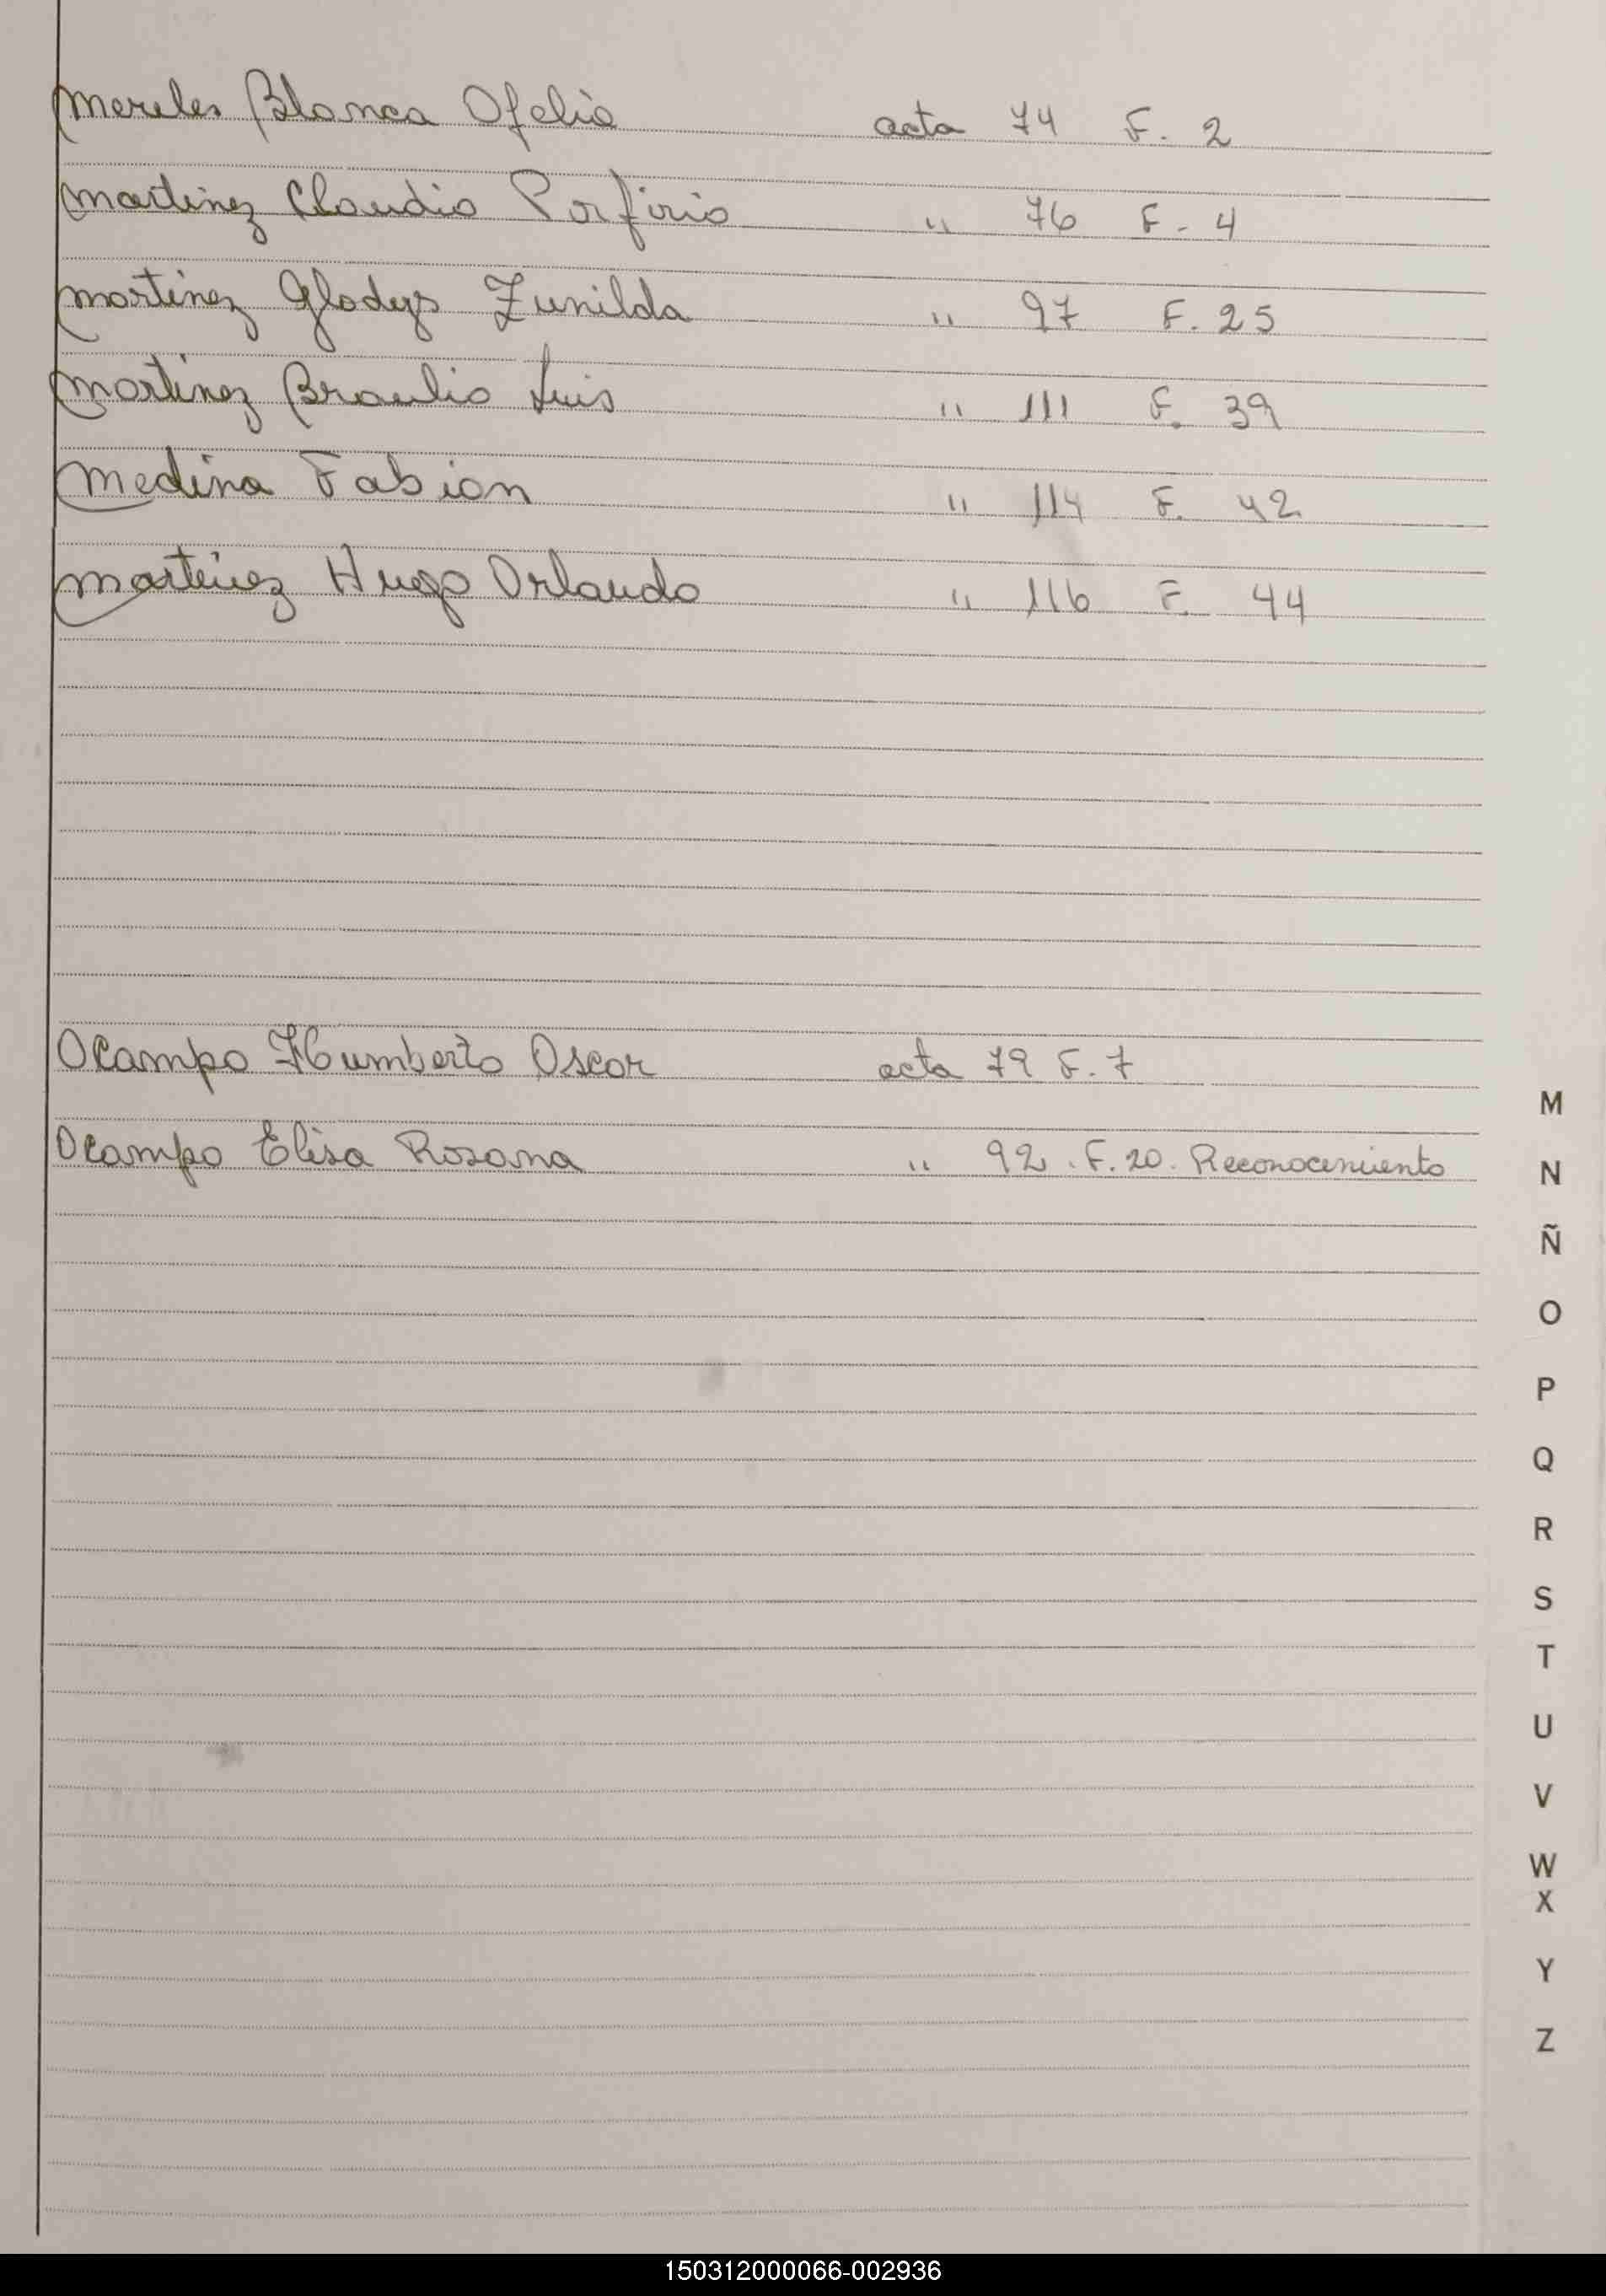 Mereles Blanca Ofelia acta 74 F. 2
Martinez Claudio Porfirio " 76 F. 4
Martinez Gladys Zunilda " 97 F. 25
Martinez Braulio Luis " 111 F. 39
Medina Fabian " 114 F. 42
Martinez Hugo Orlando " 116 F. 44
Ocampo Humberto Oscar acta 79 F. 7
Ocampo Elisa Rosana " 92. F. 20. Reconocimiento
M
N
Ñ
O
P
Q
R
S
T
U
V
W
X
Y
Z
150312000066-002936